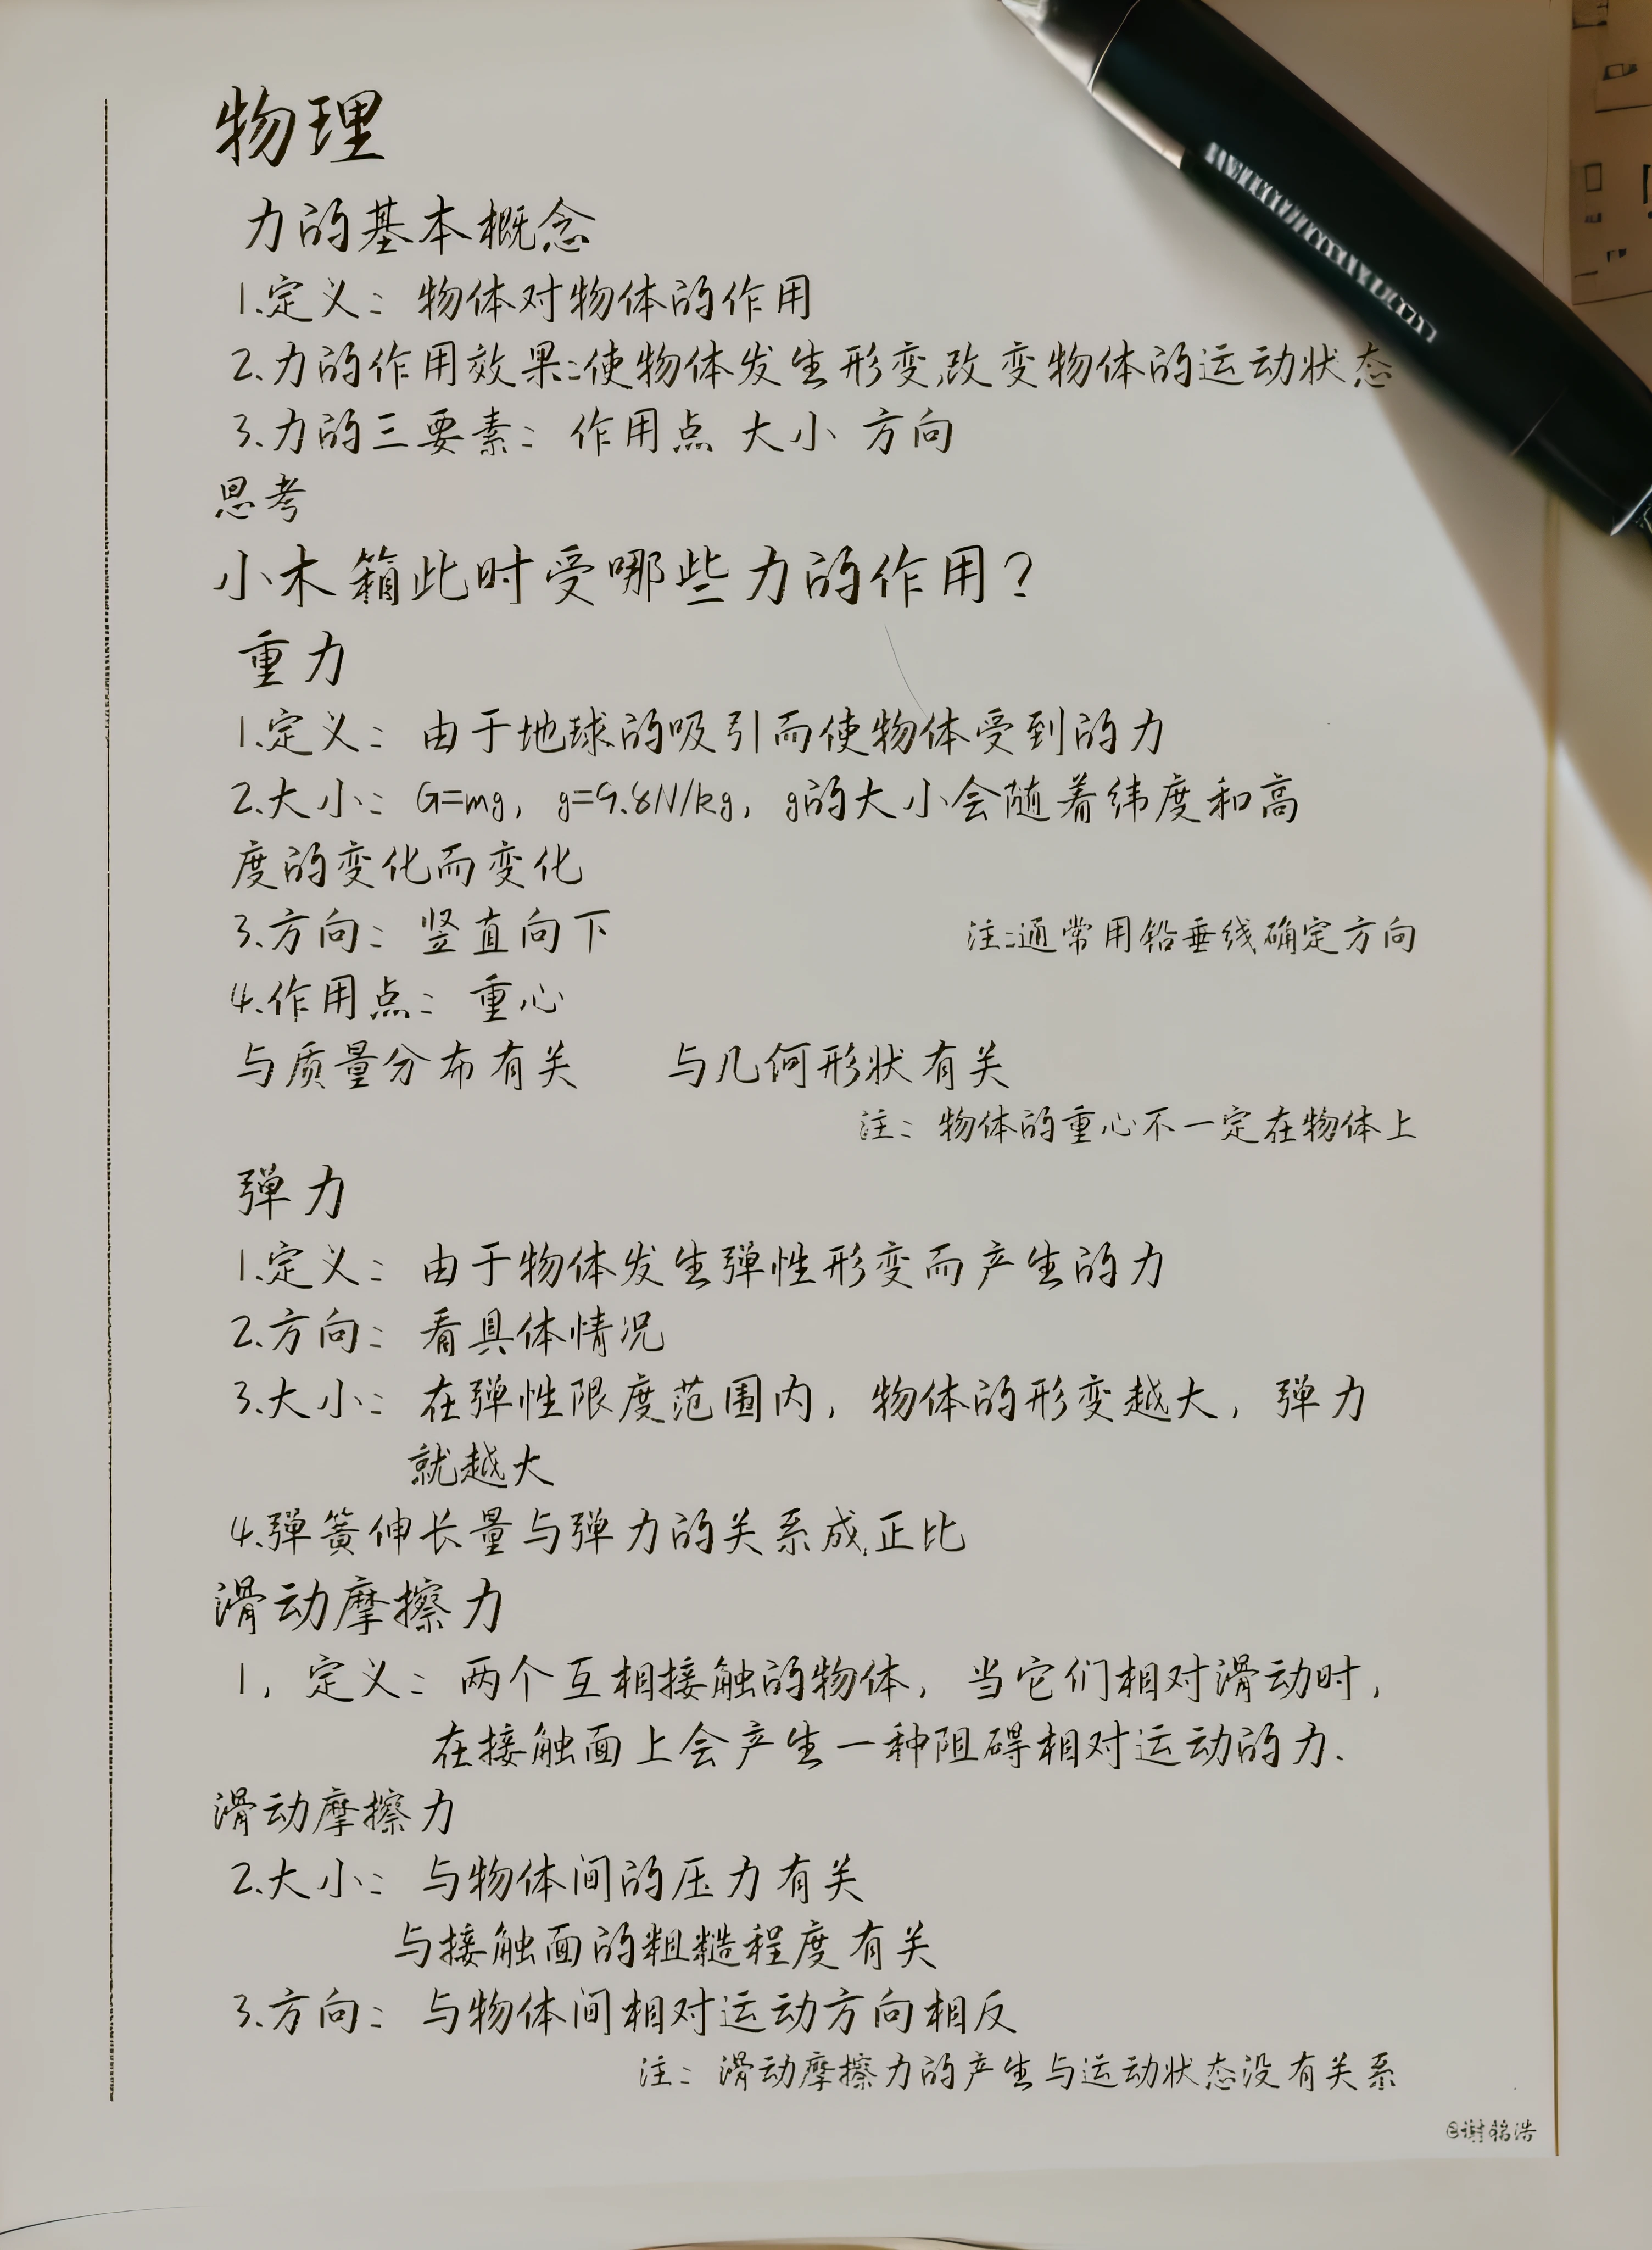 物理
力的基本概念
1.定义：物体对物体的作用
2.力的作用效果：使物体发生形变,改变物体的运动状态
3.力的三要素：作用点 大小 方向
思考
小木箱此时受哪些力的作用？
重力
1.定义：由于地球的吸引而使物体受到的力
2.大小：G=mg，g=9.8N/kg，g的大小会随着纬度和高
度的变化而变化
3.方向：竖直向下 注：通常用铅垂线确定方向
4.作用点：重心
与质量分布有关 与几何形状有关
注：物体的重心不一定在物体上
弹力
1.定义：由于物体发生弹性形变而产生的力
2.方向：看具体情况
3.大小：在弹性限度范围内，物体的形变越大，弹力
就越大
4.弹簧伸长量与弹力的关系成正比
滑动摩擦力
1，定义：两个互相接触的物体，当它们相对滑动时，
在接触面上会产生一种阻碍相对运动的力.
滑动摩擦力
2.大小：与物体间的压力有关
与接触面的粗糙程度有关
3.方向：与物体间相对运动方向相反
注：滑动摩擦力的产生与运动状态没有关系